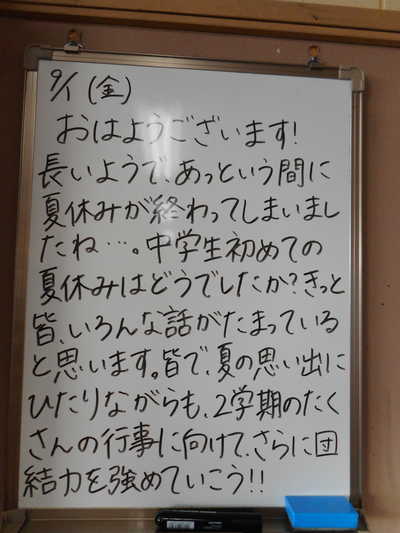 9/1(金)
おはようございます!
長いようで、あっという間に
夏休みが終わってしまいまし
たね…。中学生初めての
夏休みはどうでしたか?きっと
皆、いろんな話がたまっている
と思います。皆で、夏の思い出に
ひたりながらも、2学期のたく
さんの行事に向けて、さらに団
結力を強めていこう!!